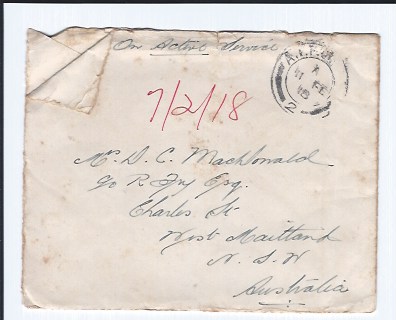 On Active Service
7/2/18
Mr. D. C. MacDonald
c/o R. Fry Esq.
Charles St
West Maitland
N. S. W
Australia
FE
18
2